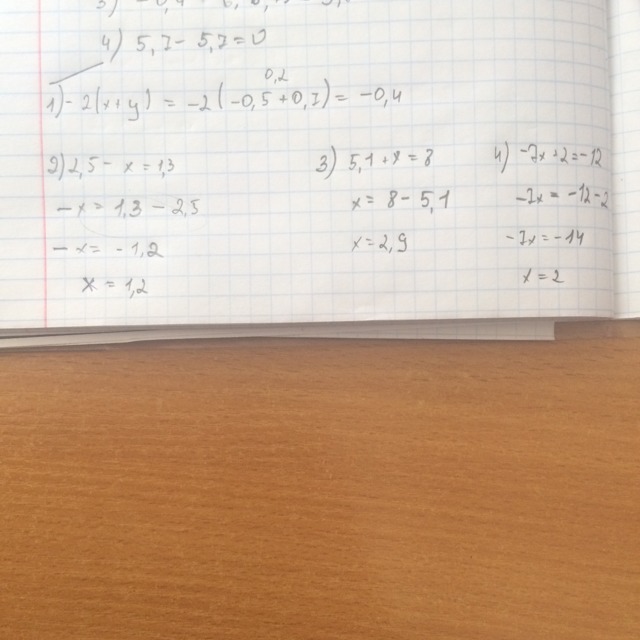 4) 5,7 - 5,7 = 0
1) -2(x+y) = -2(-0,5+0,7) = -0,4
0,2
2) 2,5 - x = 1,3
-x = 1,3 - 2,5
-x = -1,2
x = 1,2
3) 5,1 + x = 8
x = 8 - 5,1
x = 2,9
4) -7x + 2 = -12
-7x = -12 - 2
-7x = -14
x = 2